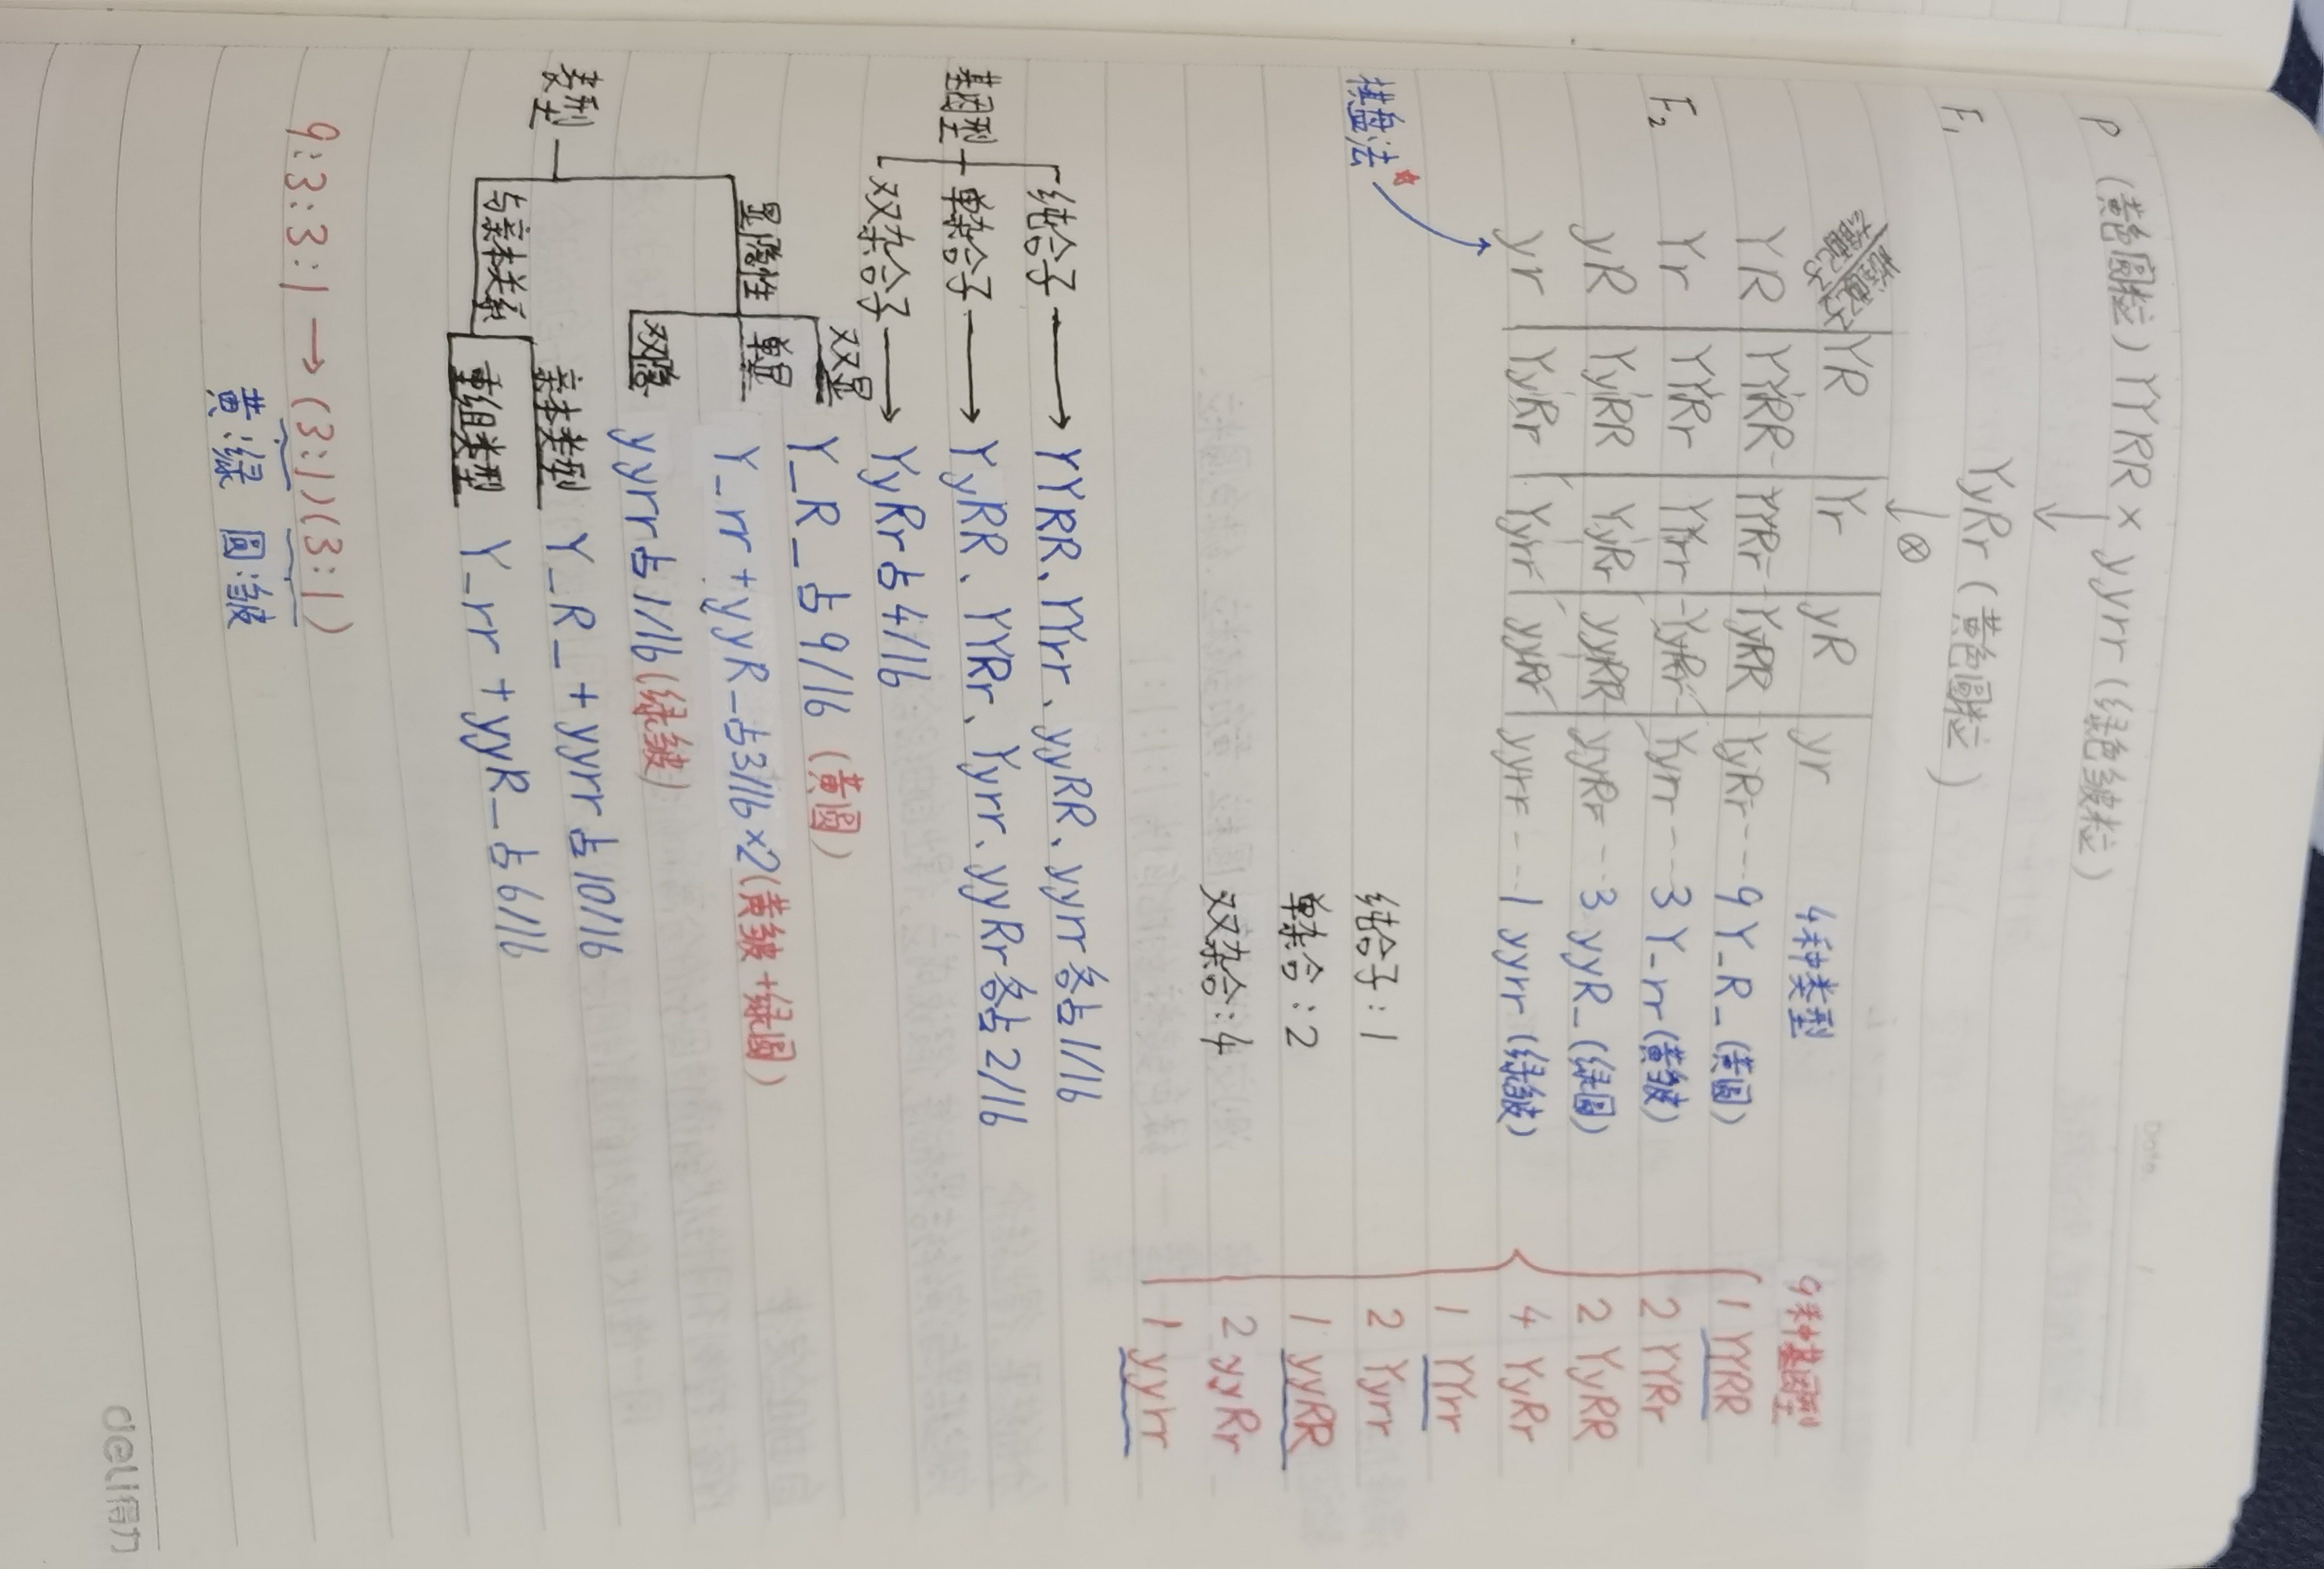 Date /
P (黄色圆粒) YYRR × yyrr (绿色皱粒)
↓
F₁ YyRr (黄色圆粒)
↓ ⊗
YR Yr yR yr 4种类型 9种基因型
YR YYRR YYRr YyRR YyRr --- 9 Y_R_ (黄圆) 1 YYRR
F₂ Yr YYRr YYrr YyRr Yyrr --- 3 Y_rr (黄皱) 2 YYRr
yR YyRR YyRr yyRR yyRr -- 3 yyR_ (绿圆) 2 YyRR
yr YyRr Yyrr yyRr yyrr --- 1 yyrr (绿皱) 4 YyRr
1 YYrr
棋盘法 纯合子:1 2 Yyrr
单杂合:2 1 yyRR
双杂合:4 2 yyRr
1 yyrr
纯合子 → YYRR、YYrr、yyRR、yyrr各占1/16
基因型 单杂合子 → YyRR、YYRr、Yyrr、yyRr各占2/16
双杂合子 → YyRr占4/16
双显 Y_R_占9/16 (黄圆)
显隐性 单显 Y_rr + yyR_占3/16×2(黄皱+绿圆)
双隐 yyrr占1/16(绿皱)
表型
亲本类型 Y_R_ + yyrr占10/16
与亲本关系
重组类型 Y_rr + yyR_占6/16
9:3:3:1 → (3:1)(3:1)
黄:绿 圆:皱
deli得力